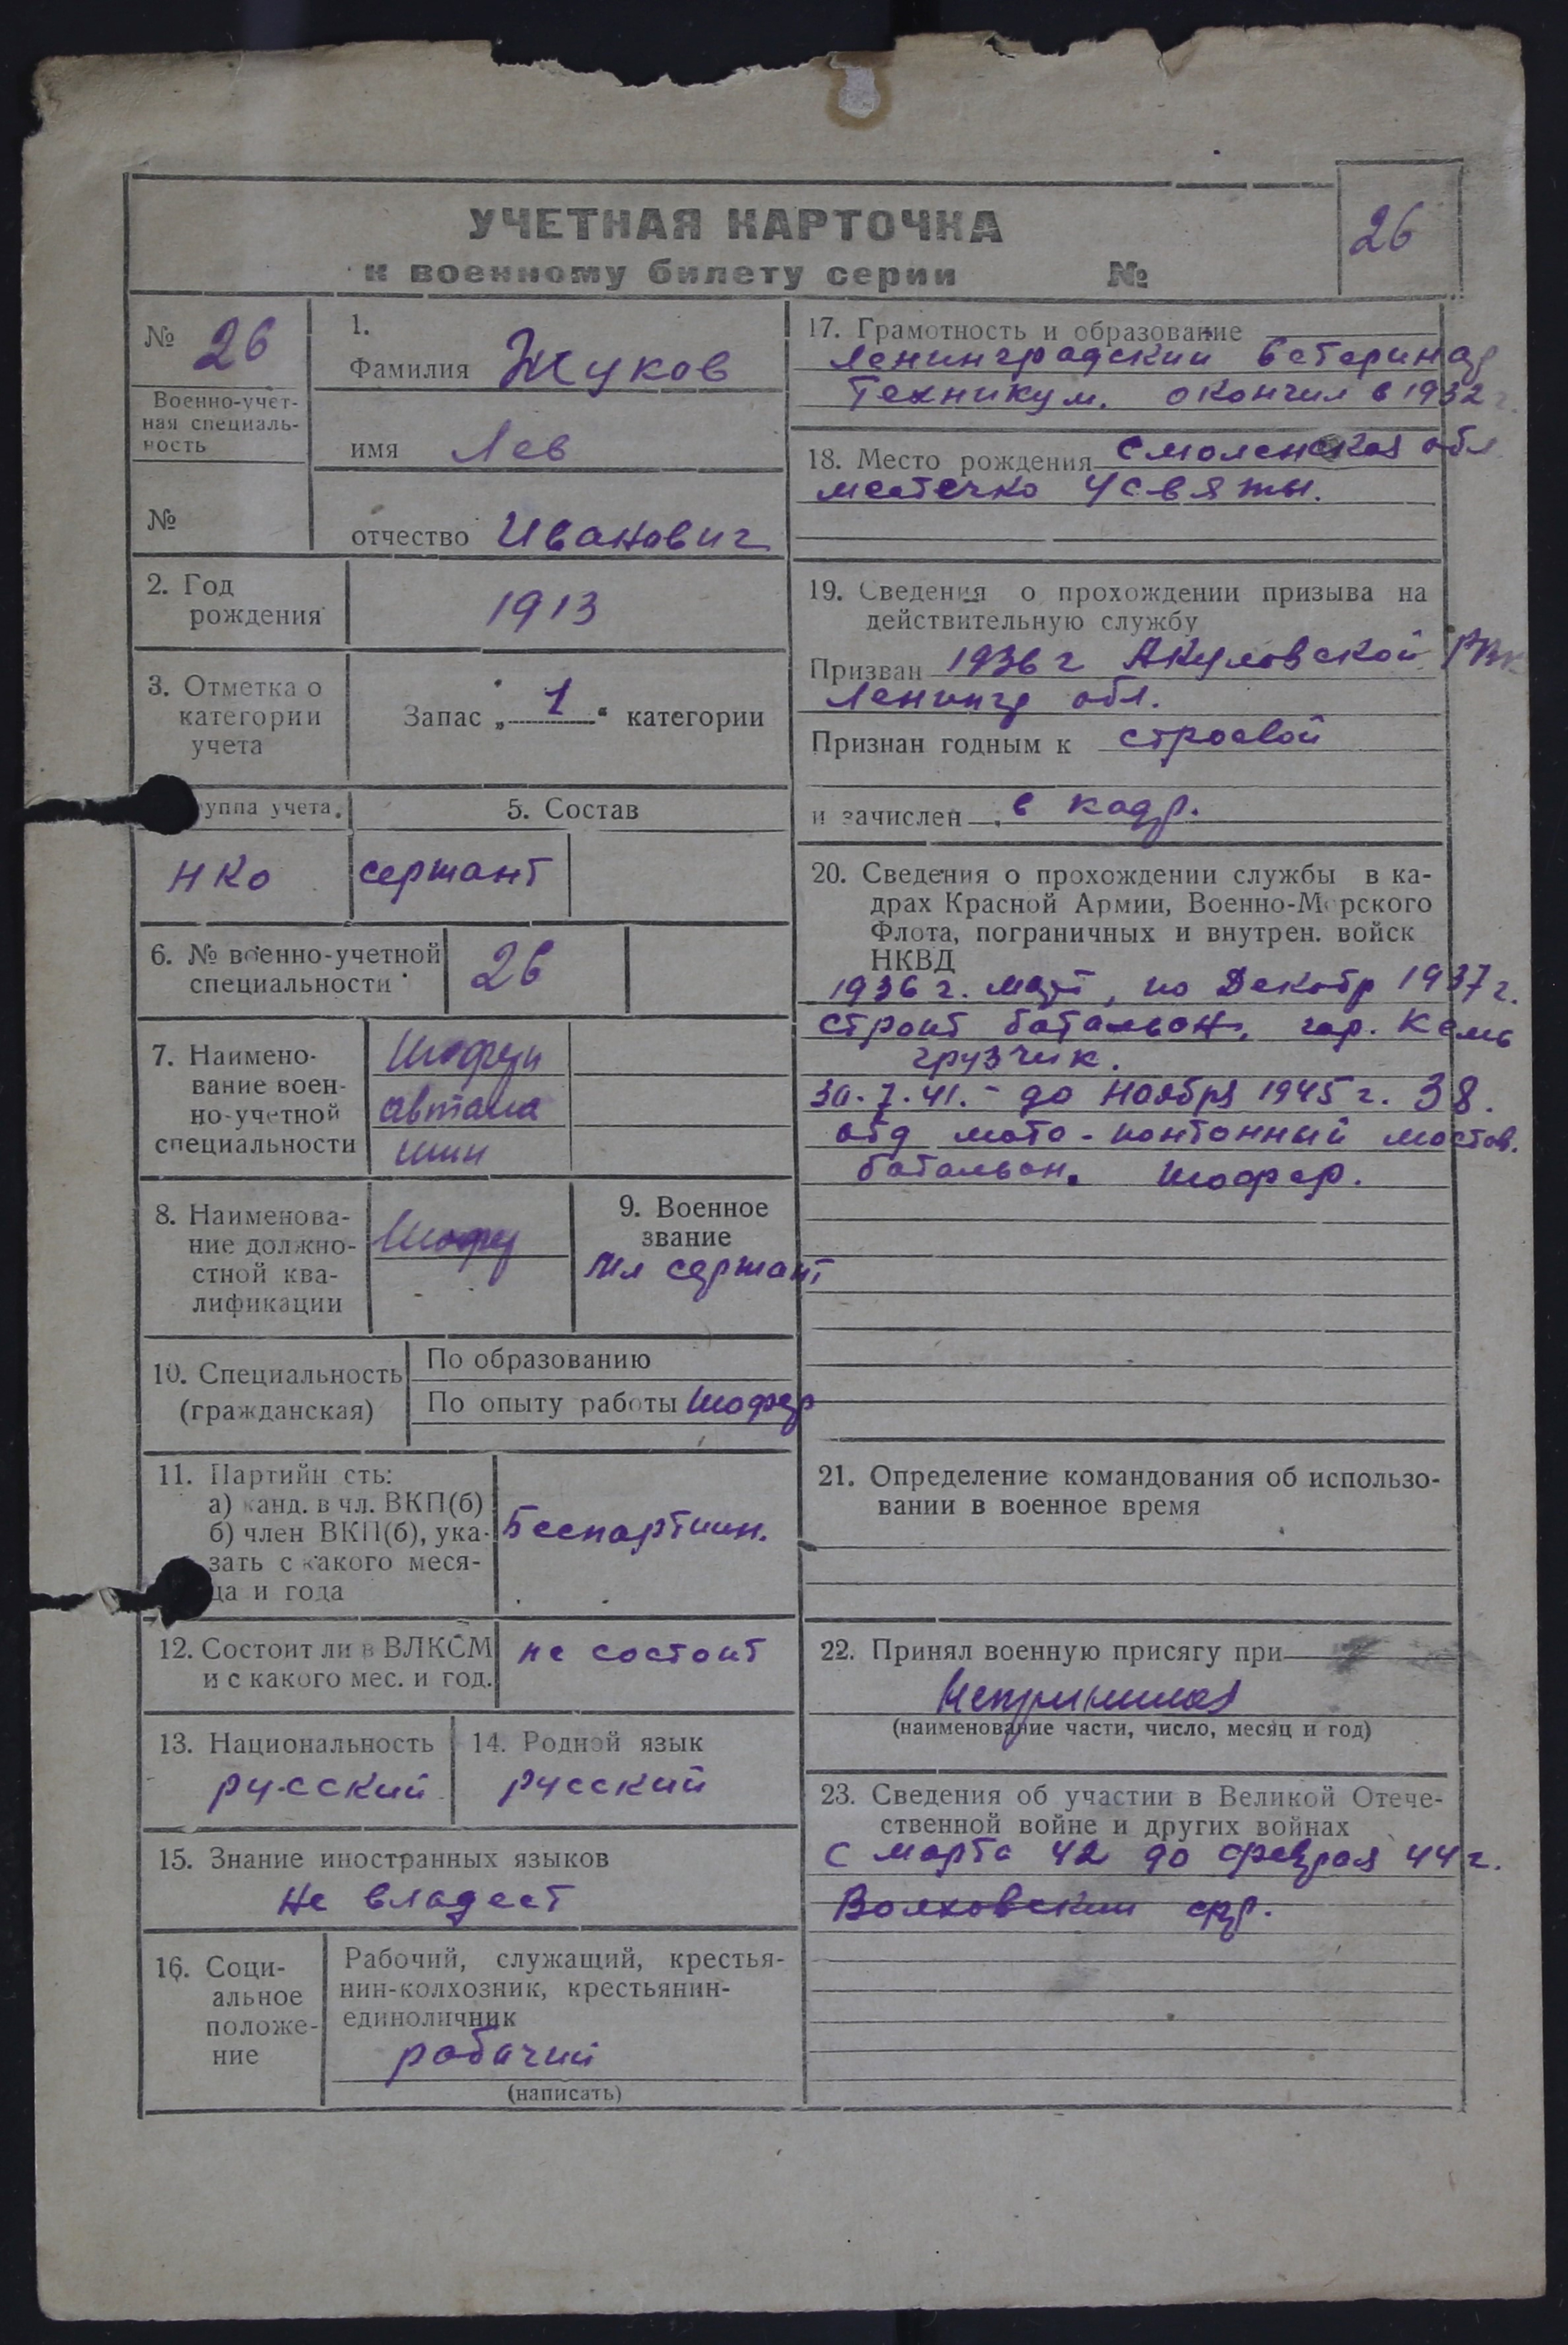 УЧЕТНАЯ КАРТОЧКА
к военному билету серии №
26
№ 26
Военно-учет-
ная специаль-
ность
№
1.
Фамилия Жуков
имя Лев
отчество Иванович
2. Год
рождения
1913
3. Отметка о
категории
учета
Запас „1“ категории
уппа учета.
НКО
5. Состав
сержант
6. № военно-учетной
специальности
26
7. Наимено-
вание воен-
но-учетной
специальности
Шофери
автома
шин
8. Наименова-
ние должно-
стной ква-
лификации
Шофер
9. Военное
звание
Мл сержант
10. Специальность
(гражданская)
По образованию
По опыту работы Шофер
11. Партийн сть:
а) канд. в чл. ВКП(б)
б) член ВКП(б), ука-
зать с какого меся-
ца и года
Беспартийн.
12. Состоит ли в ВЛКСМ
и с какого мес. и год.
не состоит
13. Национальность
русский
14. Родной язык
русский
15. Знание иностранных языков
Не владеет
16. Соци-
альное
положе-
ние
Рабочий, служащий, крестья-
нин-колхозник, крестьянин-
единоличник
рабочий
(написать)
17. Грамотность и образование
Ленинградский ветеринар
Техникум. окончил в 1932 г.
18. Место рождения Смоленская обл
местечко Усвяты.
19. Сведения о прохождении призыва на
действительную службу
Призван 1936 г Акуловской РВК
Ленингр обл.
Признан годным к строевой
и зачислен в кадр.
20. Сведения о прохождении службы в ка-
драх Красной Армии, Военно-Морского
Флота, пограничных и внутрен. войск
НКВД
1936 г. март, по Декабр 1937 г.
строит батальон, гор. Кемь
грузчик.
30.7.41. - до Ноября 1945 г. 38.
отд мото-понтонный мостов.
батальон. Шофер.
21. Определение командования об использо-
вании в военное время
22. Принял военную присягу при
Непринимал
(наименование части, число, месяц и год)
23. Сведения об участии в Великой Отече-
ственной войне и других войнах
С марта 42 до февраля 44 г.
Волховский фр.